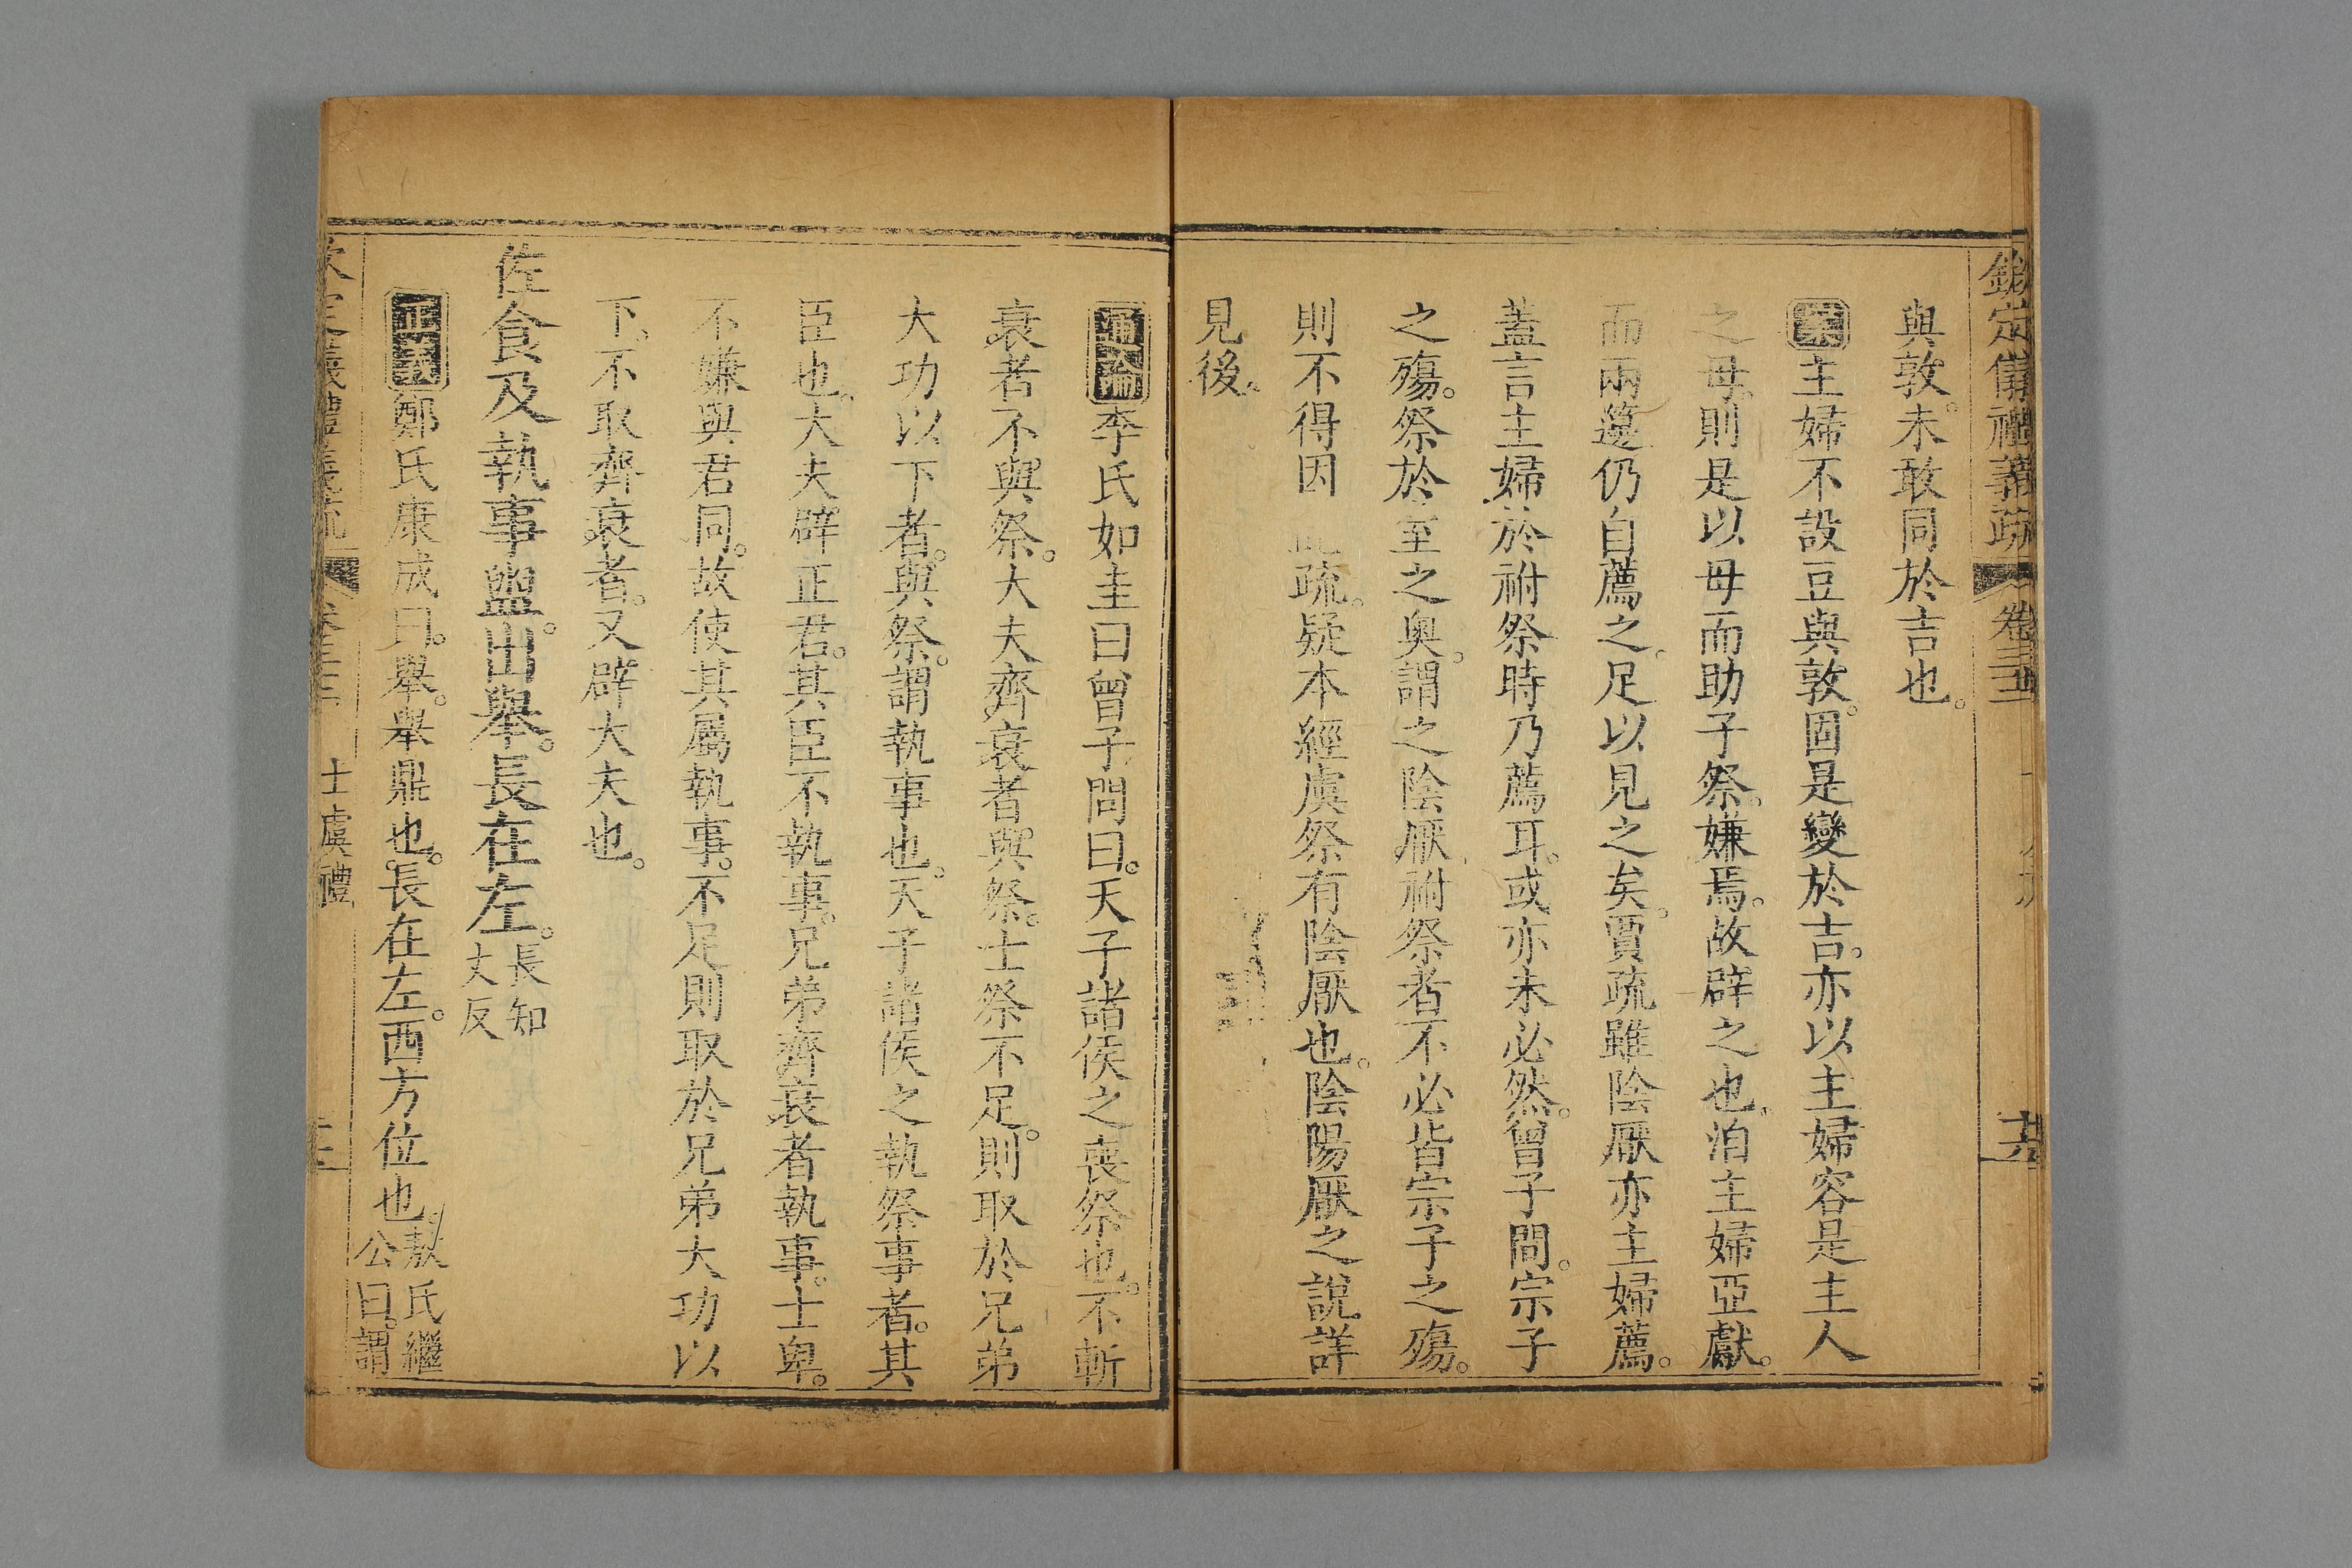 欽定儀禮義疏 卷三十三
與敦。未敢同於吉也。
案主婦不設豆與敦。固是變於吉。亦以主婦容是主人
之母。則是以母而助子祭。嫌焉。故辟之也。洎主婦亞獻。
而兩籩仍自薦之。足以見之矣。賈疏雖陰厭亦主婦薦。
蓋言主婦於祔祭時乃薦耳。或亦未必然。曾子問。宗子
之殤。祭於室之奧。謂之陰厭。祔祭者不必皆宗子之殤。
則不得因此疏。疑本經虞祭有陰厭也。陰陽厭之說。詳
見後。
通論李氏如圭曰曾子問曰。天子諸侯之喪祭也。不斬
衰者不與祭。大夫齊衰者與祭。士祭不足。則取於兄弟
大功以下者。與祭。謂執事也。天子諸侯之執祭事者。其
臣也。大夫。辟正君。其臣不執事。兄弟齊衰者執事。士卑。
不嫌與君同。故使其屬執事。不足則取於兄弟大功以
下。不取齊衰者。又辟大夫也。
佐食及執事盥。出舉。長在左。長知丈反
正義鄭氏康成曰。舉。舉鼎也。長在左。西方位也。敖氏繼公曰。謂
士虞禮